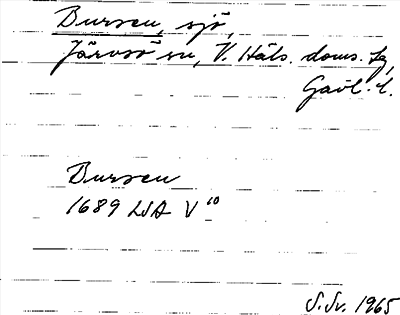 Bursen, sjö,
Järvsö sn, V. Häls. doms. lg,
Gävl. l.
Bursen
1689 LSA V 10
S.Sv. 1965